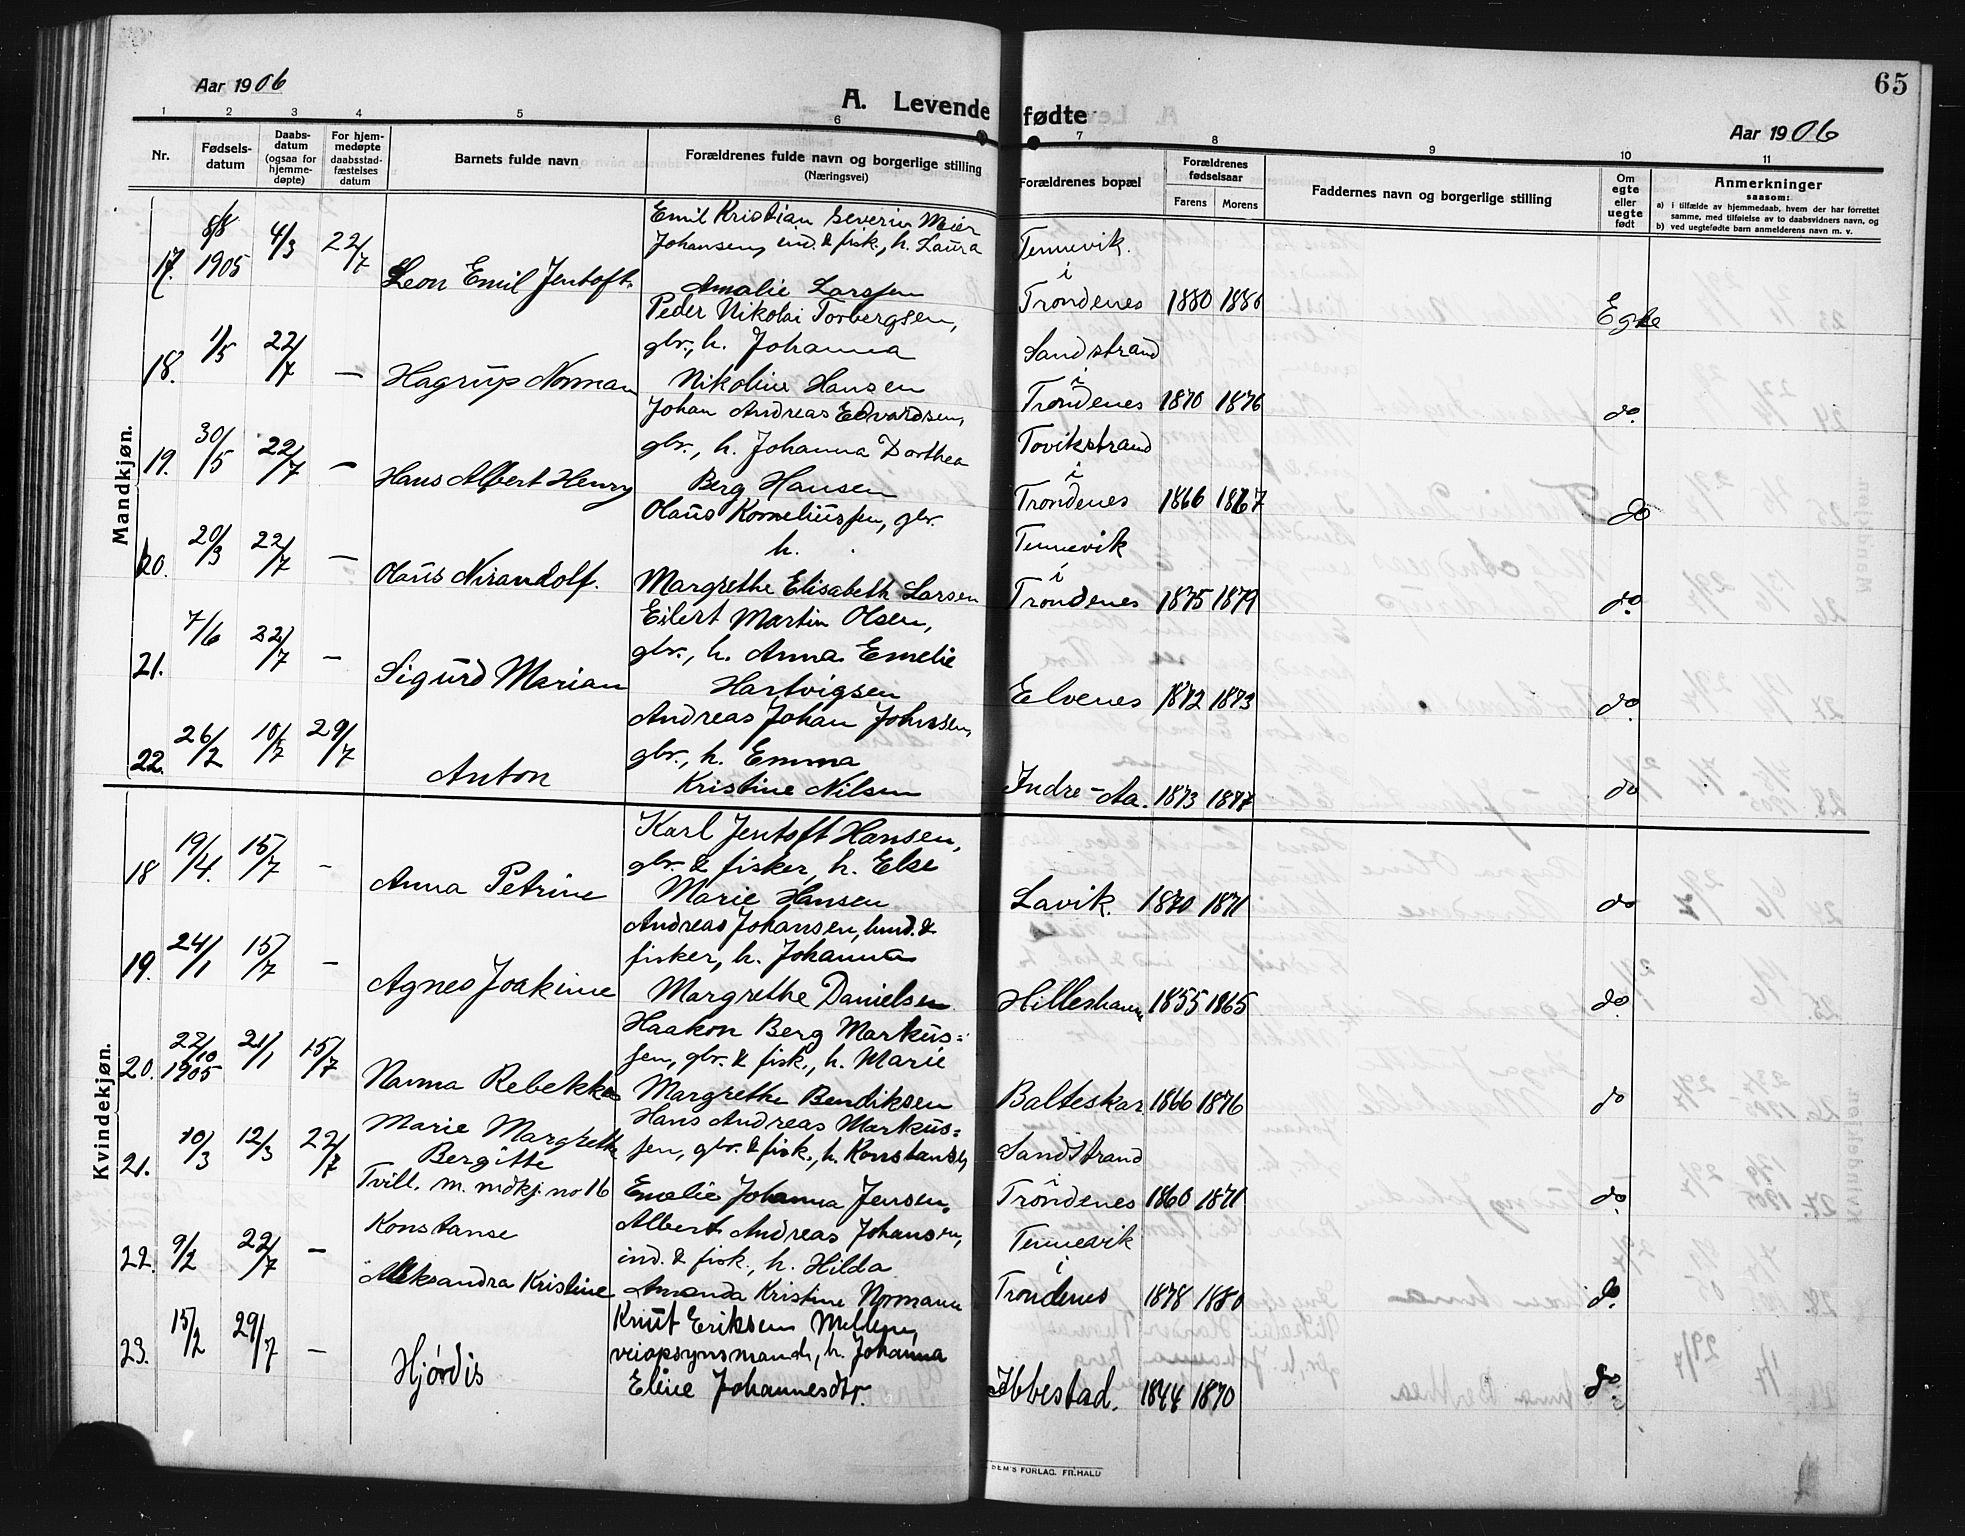 65
Aar 1906
A. Levende fødte
Aar 1906
1 2 3 4 5 6 7 8 9 10 11
Nr.
Fødsels-
datum
Daabs-
datum
(ogsaa for
hjemme-
døpte)
For hjem-
medøpte
daabsstad-
fæstelses
datum
Barnets fulde navn
Forældrenes fulde navn og borgerlige stilling
(Næringsvei)
Forældrenes bopæl
Forældrenes
fødselsaar
Farens Morens
Faddernes navn og borgerlige stilling
Om
egte
eller
uegte
født
Anmerkninger
saasom:
a) i tilfælde av hjemmedaab, hvem der har forrettet
samme, med tilføielse av to daabsvidners navn, og
b) ved uegtefødte barn anmelderens navn m. v.
Mandkjøn.
17. 8/8 1905 4/3 22/7 Leon Emil Jentoft
Emil Kristian Severin Meier
Johansen, ind. & fisk., h. Laura
Amalie Larssen
Tennevik
i
Trondenes 1880 1886 Egte
18. 1/5 22/7 — Hagrup Norman
Peder Nikolai Torbergsen,
gbr., h. Johanna
Nikoline Hansen
Sandstrand
i
Trondenes 1870 1876 do.
19. 30/5 22/7 — Hans Albert Henry
Johan Andreas Edvardsen,
gbr., h. Johanna Dorthea
Berg Hansen
Tovikstrand
i
Trondenes 1866 1867 do
20. 20/3 22/7 — Olaus Nirandolf.
Olaus Korneliussen, gbr.
h.
Margrethe Elisabeth Larsen
Tennevik
i
Trondenes 1875 1879 do.
21. 7/6 22/7 — Sigurd Marian
Eilert Martin Olsen,
gbr., h. Anna Emelie
Hartvigsen
Elvenes 1872 1873 do.
22. 26/2 10/7 29/7 Anton
Andreas Johan Johnsen,
gbr., h. Emma
Kristine Nilsen
Indre-Aa. 1873 1877 do
Kvindekjøn.
18 19/4. 15/7 - Anna Petrine
Karl Jentoft Hansen,
gbr. & fisker, h. Else
Marie Hansen
Lavik. 1870 1871 do
19. 24/1 15/7 - Agnes Joakime
Andreas Johansen, ind. &
fisker, h. Johanna
Margrethe Danielsen
Hilleshamn 1855 1865 do.
20. 22/10 1905 21/1 15/7 Nanna Rebekka
Haakon Berg Markus=
sen, gbr. & fisk., h. Marie
Margrethe Bendiksen
Balteskar 1866 1876 do
21. 10/3 12/3 22/7 Marie Margrethe
Bergitte
Tvill. m. mdkj. no 16
Hans Andreas Markus=
sen, gbr. & fisk., h. Konstanse
Emelie Johanna Jensen.
Sandstrand
i
Trondenes 1860 1871 do.
22. 9/2 22/7 — Konstanse
Aleksandra Kristine
Albert Andreas Johansen,
ind. & fisk., h. Hilda
Amanda Kristine Normann
Tennevik
i
Trondenes 1878 1880 do.
23. 15/2 29/7 — Hjørdis
Knut Eriksen Mellem,
veiopsynsmand, h. Johanna
Eline Johannesdtr.
Ibbestad. 1844 1870 do.
DEM'S FORLAG. FR.HALD